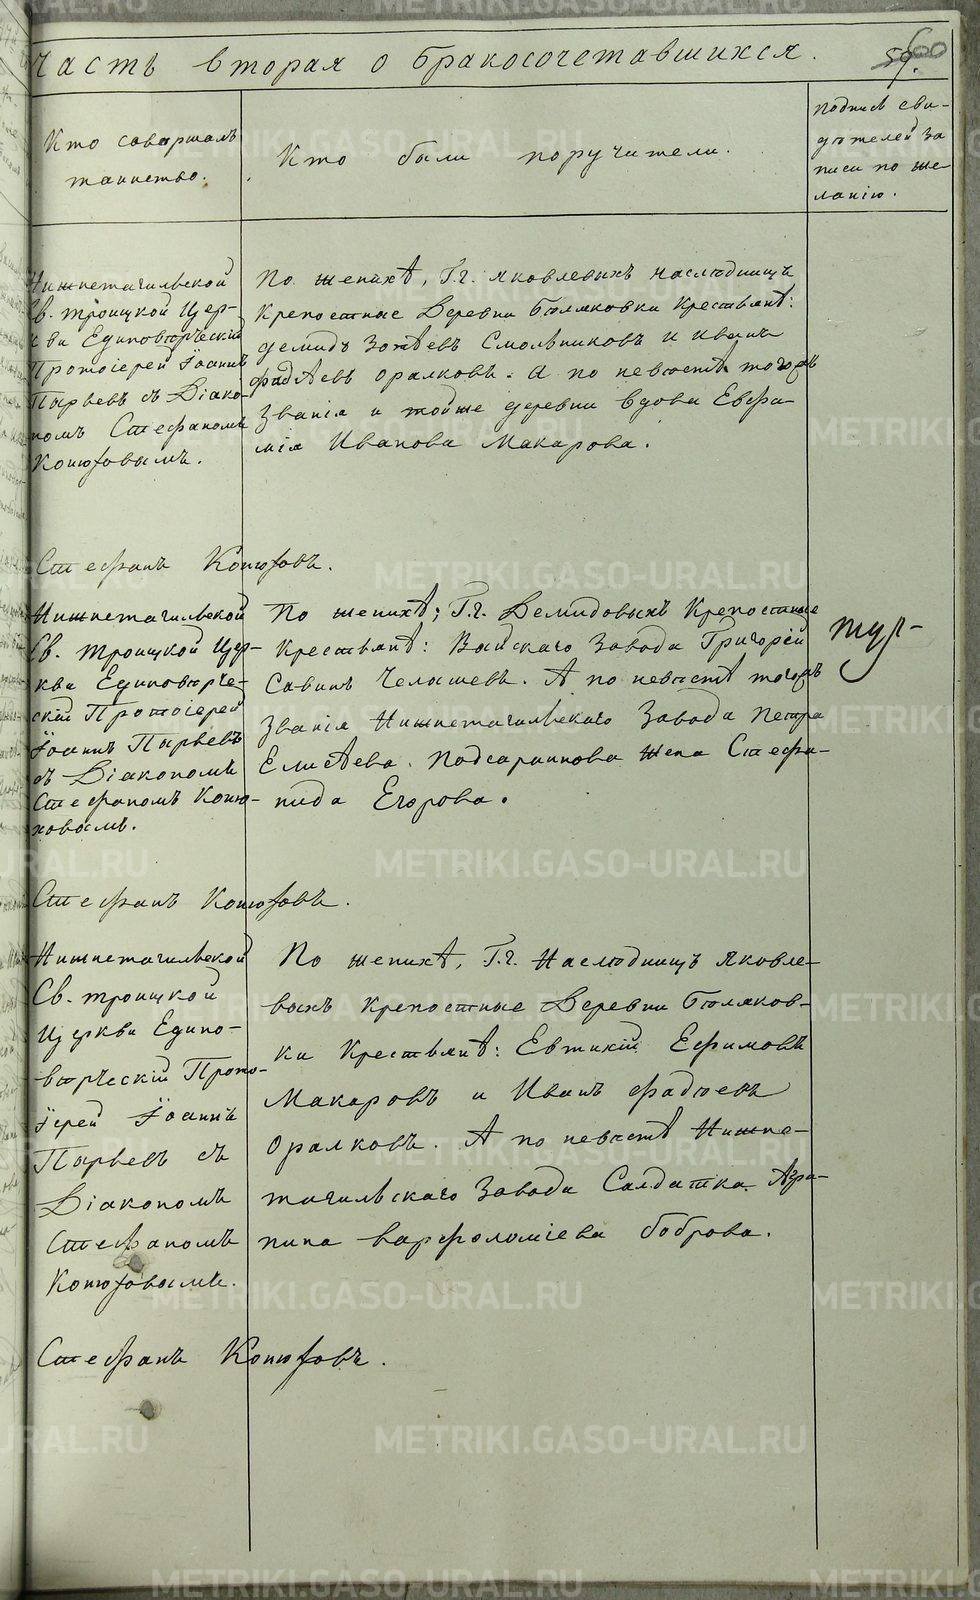 Часть вторая о бракосочетавшихся.
59.
600
Кто совершалъ
таинство.
Кто были поручители.
Подпись сви-
дѣтелей за
писи по же-
ланію.
Нижнетагильской
Св. Троицкой Цер-
кви Единовѣрческій
Протоіерей Іоаннъ
Пырьевъ съ Діако-
номъ Стефаномъ
Конюховымъ.
По женихѣ, Г.г. Яковлевыхъ наслѣдницъ
крепостные Деревни Боляковки Крестьянѣ:
Демидъ Зотѣевъ Смольниковъ и Иванъ
Фадѣевъ Оралковъ. А по невѣстѣ тогожъ
Званія и тойже деревни вдова Евфи-
мія Иванова Макарова.
Стефанъ Конюховъ.
Нижнетагильской
Св. Троицкой Цер-
кви Единовѣрче-
скій Протоіерей
Іоаннъ Пырьевъ
съ Діакономъ
Стефаномъ Коню-
ховымъ.
По женихѣ; Г.г. Демидовыхъ Крепостные
Крестьянѣ: Выйскаго Завода Григорій
Савинъ Челышевъ. А по невѣстѣ тогожъ
Званія Нижнетагильскаго Завода Петра
Елисѣева Подсаринкова Жена Стефа-
нида Егорова.
Стефанъ Конюховъ.
Нижнетагильской
Св. Троицкой
Церкви Едино-
вѣрческій Прото-
іерей Іоаннъ
Пырьевъ съ
Діакономъ
Стефаномъ
Конюховымъ.
По женихѣ, Г.г. Наслѣдницъ Яковле-
выхъ крепостные Деревни Боляков-
ки Крестьянѣ: Евтихій Ефимовъ
Макаровъ и Иванъ Фадѣевъ
Оралковъ. А по невѣстѣ Нижне-
тагильскаго Завода Салдатка Агри-
пина Варфоломіева Боброва.
Стефанъ Конюховъ.
METRIKI.GASO-URAL.RU